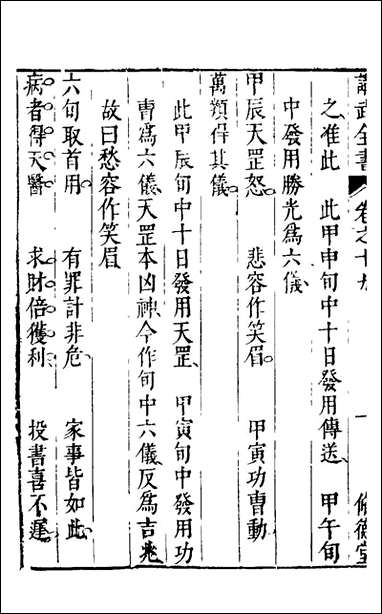 講武全書 卷之十九 一 脩德堂
之准此 此甲申旬中十日發用傳送 甲午旬
中發用勝光爲六儀
甲辰天罡怒 悲容作笑眉 甲寅功曹動
萬類得其儀
此甲辰旬中十日發用天罡 甲寅旬中發用功
曹爲六儀天罡本凶神今作旬中六儀反爲吉兆
故曰愁容作笑眉
六旬取首用 有罪計非危 家事皆如此
病者得天醫 求財倍獲利 投書喜不遲